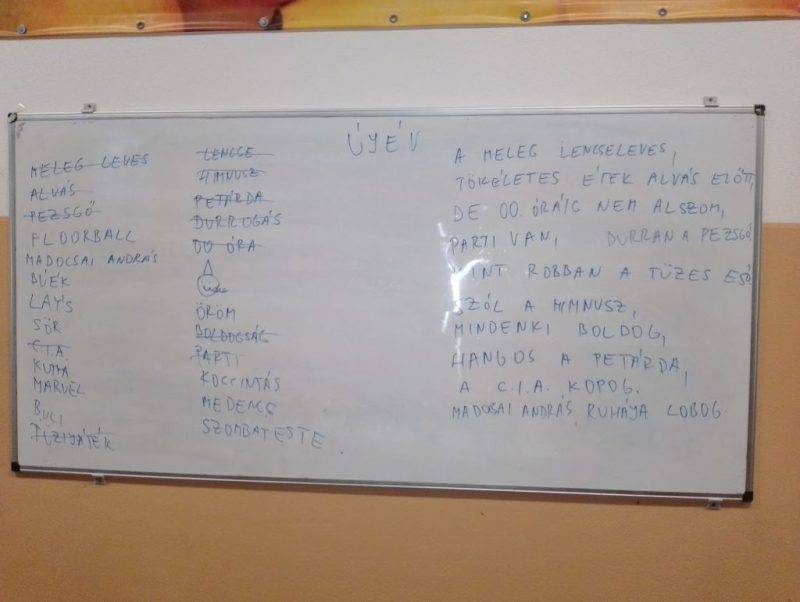 ÚJÉV
MELEG LEVES
ALVÁS
PEZSGŐ
FLOORBALL
MADOCSAI ANDRÁS
BÚÉK
LAY'S
SÖR
C.I.A.
KUTYA
MARVEL
BULI
TŰZIJÁTÉK
LENCSE
HIMNUSZ
PETÁRDA
DURROGÁS
00 ÓRA
ÖRÖM
BOLDOGSÁG
PARTI
KOCCINTÁS
MEDENCE
SZOMBAT ESTE
A MELEG LENCSELEVES,
TÖKÉLETES ÉTEK ALVÁS ELŐTT,
DE 00 ÓRÁIG NEM ALSZOM,
PARTI VAN, DURRAN A PEZSGŐ
MINT ROBBAN A TÜZES ESŐ
SZÓL A HIMNUSZ,
MINDENKI BOLDOG,
HANGOS A PETÁRDA,
A C.I.A. KOPOG.
MADOSAI ANDRÁS RUHÁJA LOBOG